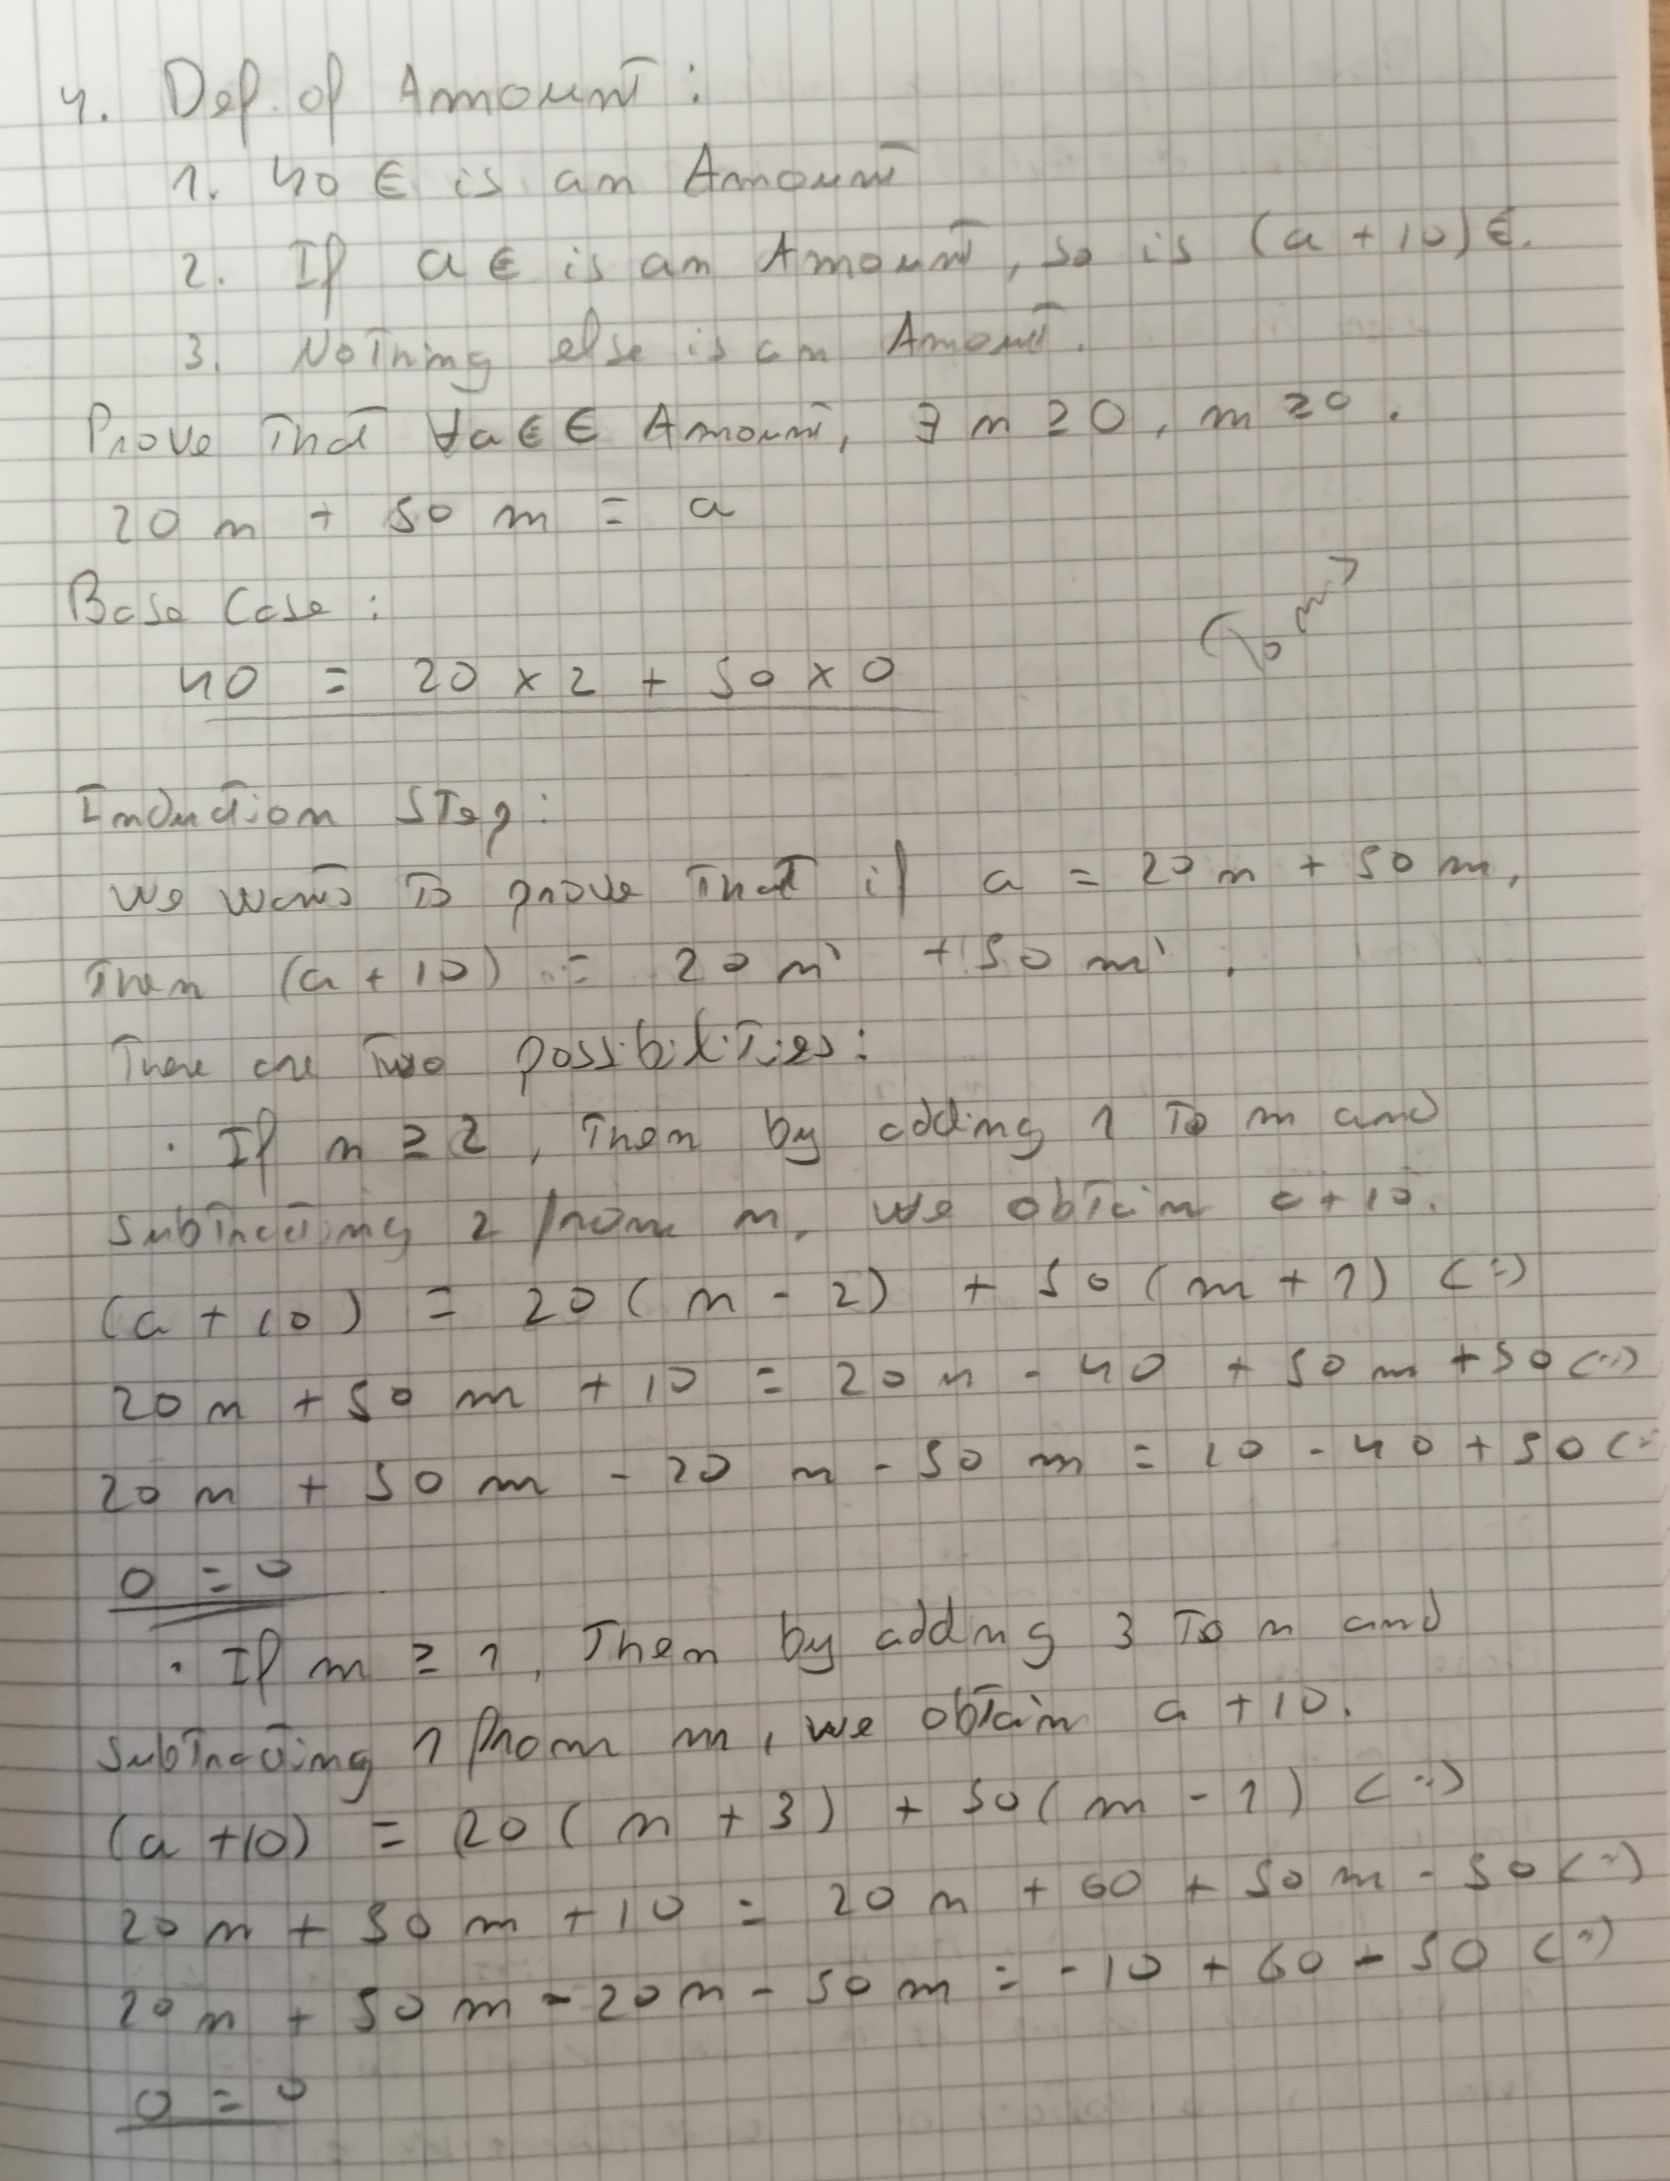 4. Def. of Amount:
1. 40 € is an Amount
2. If a € is an Amount, so is (a + 10) €.
3. Nothing else is an Amount.
Prove that ∀a€ ∈ Amount, ∃ n ≥ 0, m ≥ 0.
20 n + 50 m = a
Base Case:
40 = 20 × 2 + 50 × 0
Induction Step:
We want to prove that if a = 20 n + 50 m,
then (a + 10) = 20 n' + 50 m'.
There are two possibilities:
· If n ≥ 2, then by adding 1 to m and
subtracting 2 from n, we obtain a + 10.
(a + 10) = 20 ( n - 2) + 50 ( m + 1) (=)
20 n + 50 m + 10 = 20 n - 40 + 50 m + 50 (=)
20 n + 50 m - 20 n - 50 m = 10 - 40 + 50 (=
0 = 0
· If m ≥ 1, Then by adding 3 to n and
subtracting 1 from m, we obtain a + 10.
(a + 10) = 20 ( n + 3) + 50 ( m - 1) (=)
20 n + 50 m + 10 = 20 n + 60 + 50 m - 50 (=)
20 n + 50 m - 20 n - 50 m = - 10 + 60 - 50 (=)
0 = 0